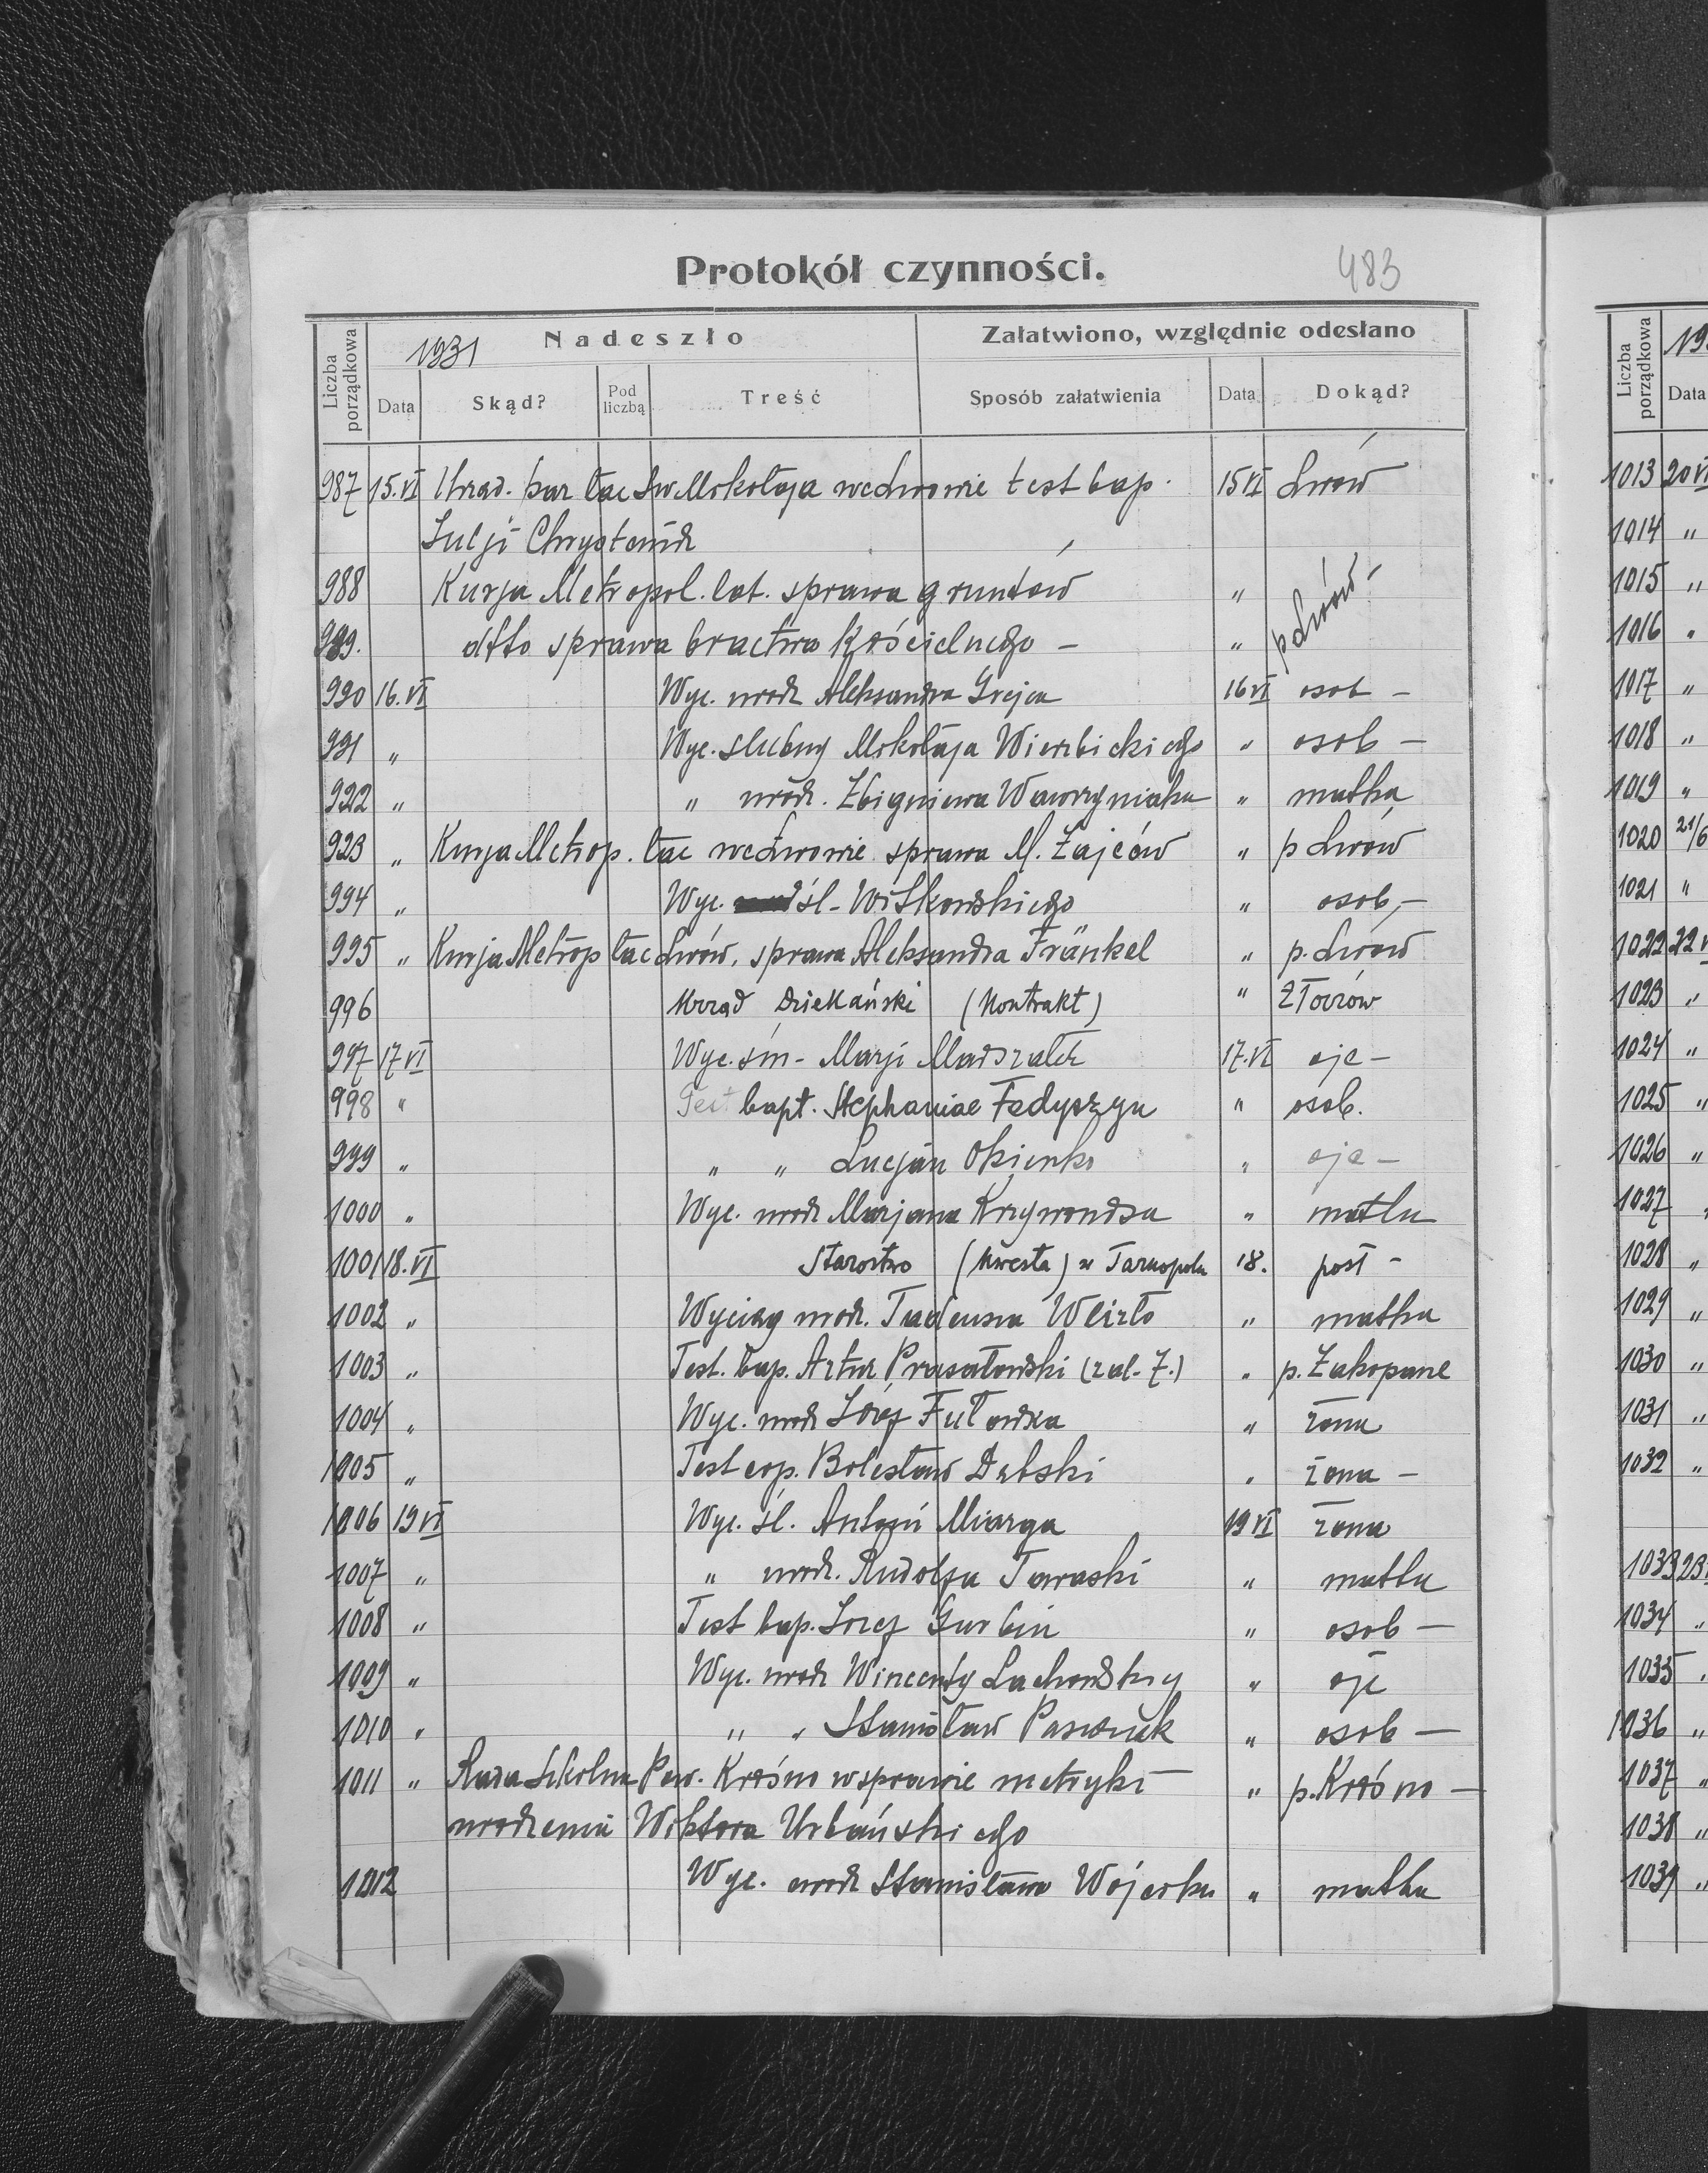 Protokół czynności. 483
Nadeszło Załatwiono, względnie odesłano
1931
Liczba porządkowa Data Skąd? Pod liczbą Treść Sposób załatwienia Data Dokąd?
987 15.VI Urząd. par łac Św Mikołaja we Lwowie test bap. 15 VI Lwów
Julji
988 Kurja Metropol. lat. sprawa gruntów " p Lwów -
989. dtto sprawa bractwa Kościelnego - "
990 16.VI Wyc. urodz Aleksandra 16 VI osob -
991 " Wyc. slubny Mikołaja Wierzbickiego " osob -
992 " " urodz. Zbigniewa Wawrzyniaka " matka
993 " Kurja Metrop. łac we Lwowie sprawa M. Zajców " p Lwów
994 " Wyc. śl - Witkowskiego " osob, -
995 " Kurja Metrop łac Lwów, sprawa Aleksandra Fränkel " p. Lwów
996 Urząd Dziekański (Kontrakt) " Złoczów
997 17 VI Wyc. śm - Marji Marszałek 17.VI ojc -
998 " Test bapt. Stephaniae Fedyszyn " osob.
999 " " " Lucjan Okienko " ojc -
1000 " Wyc. urodz Marjana Krzywondza " matka
1001 18.VI Starostwo (Kwesta) w Tarnopolu 18. post -
1002 " Wyciąg urodz. Tadeusza " matka
1003 " Test. bap. Artur Prasałowski (zal. 7.) " p. Zakopane
1004 " Wyc. urodz Józef " żona
1005 " Test cop. Bolesław Dębski " żona -
1006 19 VI Wyc. śl. Antoni Miarga 19 VI żona
1007 " " urodz. Rudolfa Tawaski " matka
1008 " Test bap. Józef Gurbin " osob -
1009 " Wyc. urodz Wincenty Lachowskiy " ojc
1010 " " " Stanisław " osob -
1011 " Rada Szkolna Pow. Krosno w sprawie metryki " p. Krosno -
urodzenia Wiktora Urbańskiego
1012 Wyc. urodz Stanisława Wójcika " matka
Liczba porządkowa Data
1013 20 VI
1014 "
1015 "
1016 "
1017 "
1018 "
1019 "
1020 21/6
1021 "
1022 22
1023 "
1024 "
1025 "
1026 "
1027
1028 "
1029 "
1030 "
1031 "
1032 "
1033 23
1034 "
1035
1036 "
1037 "
1038 "
1039 "